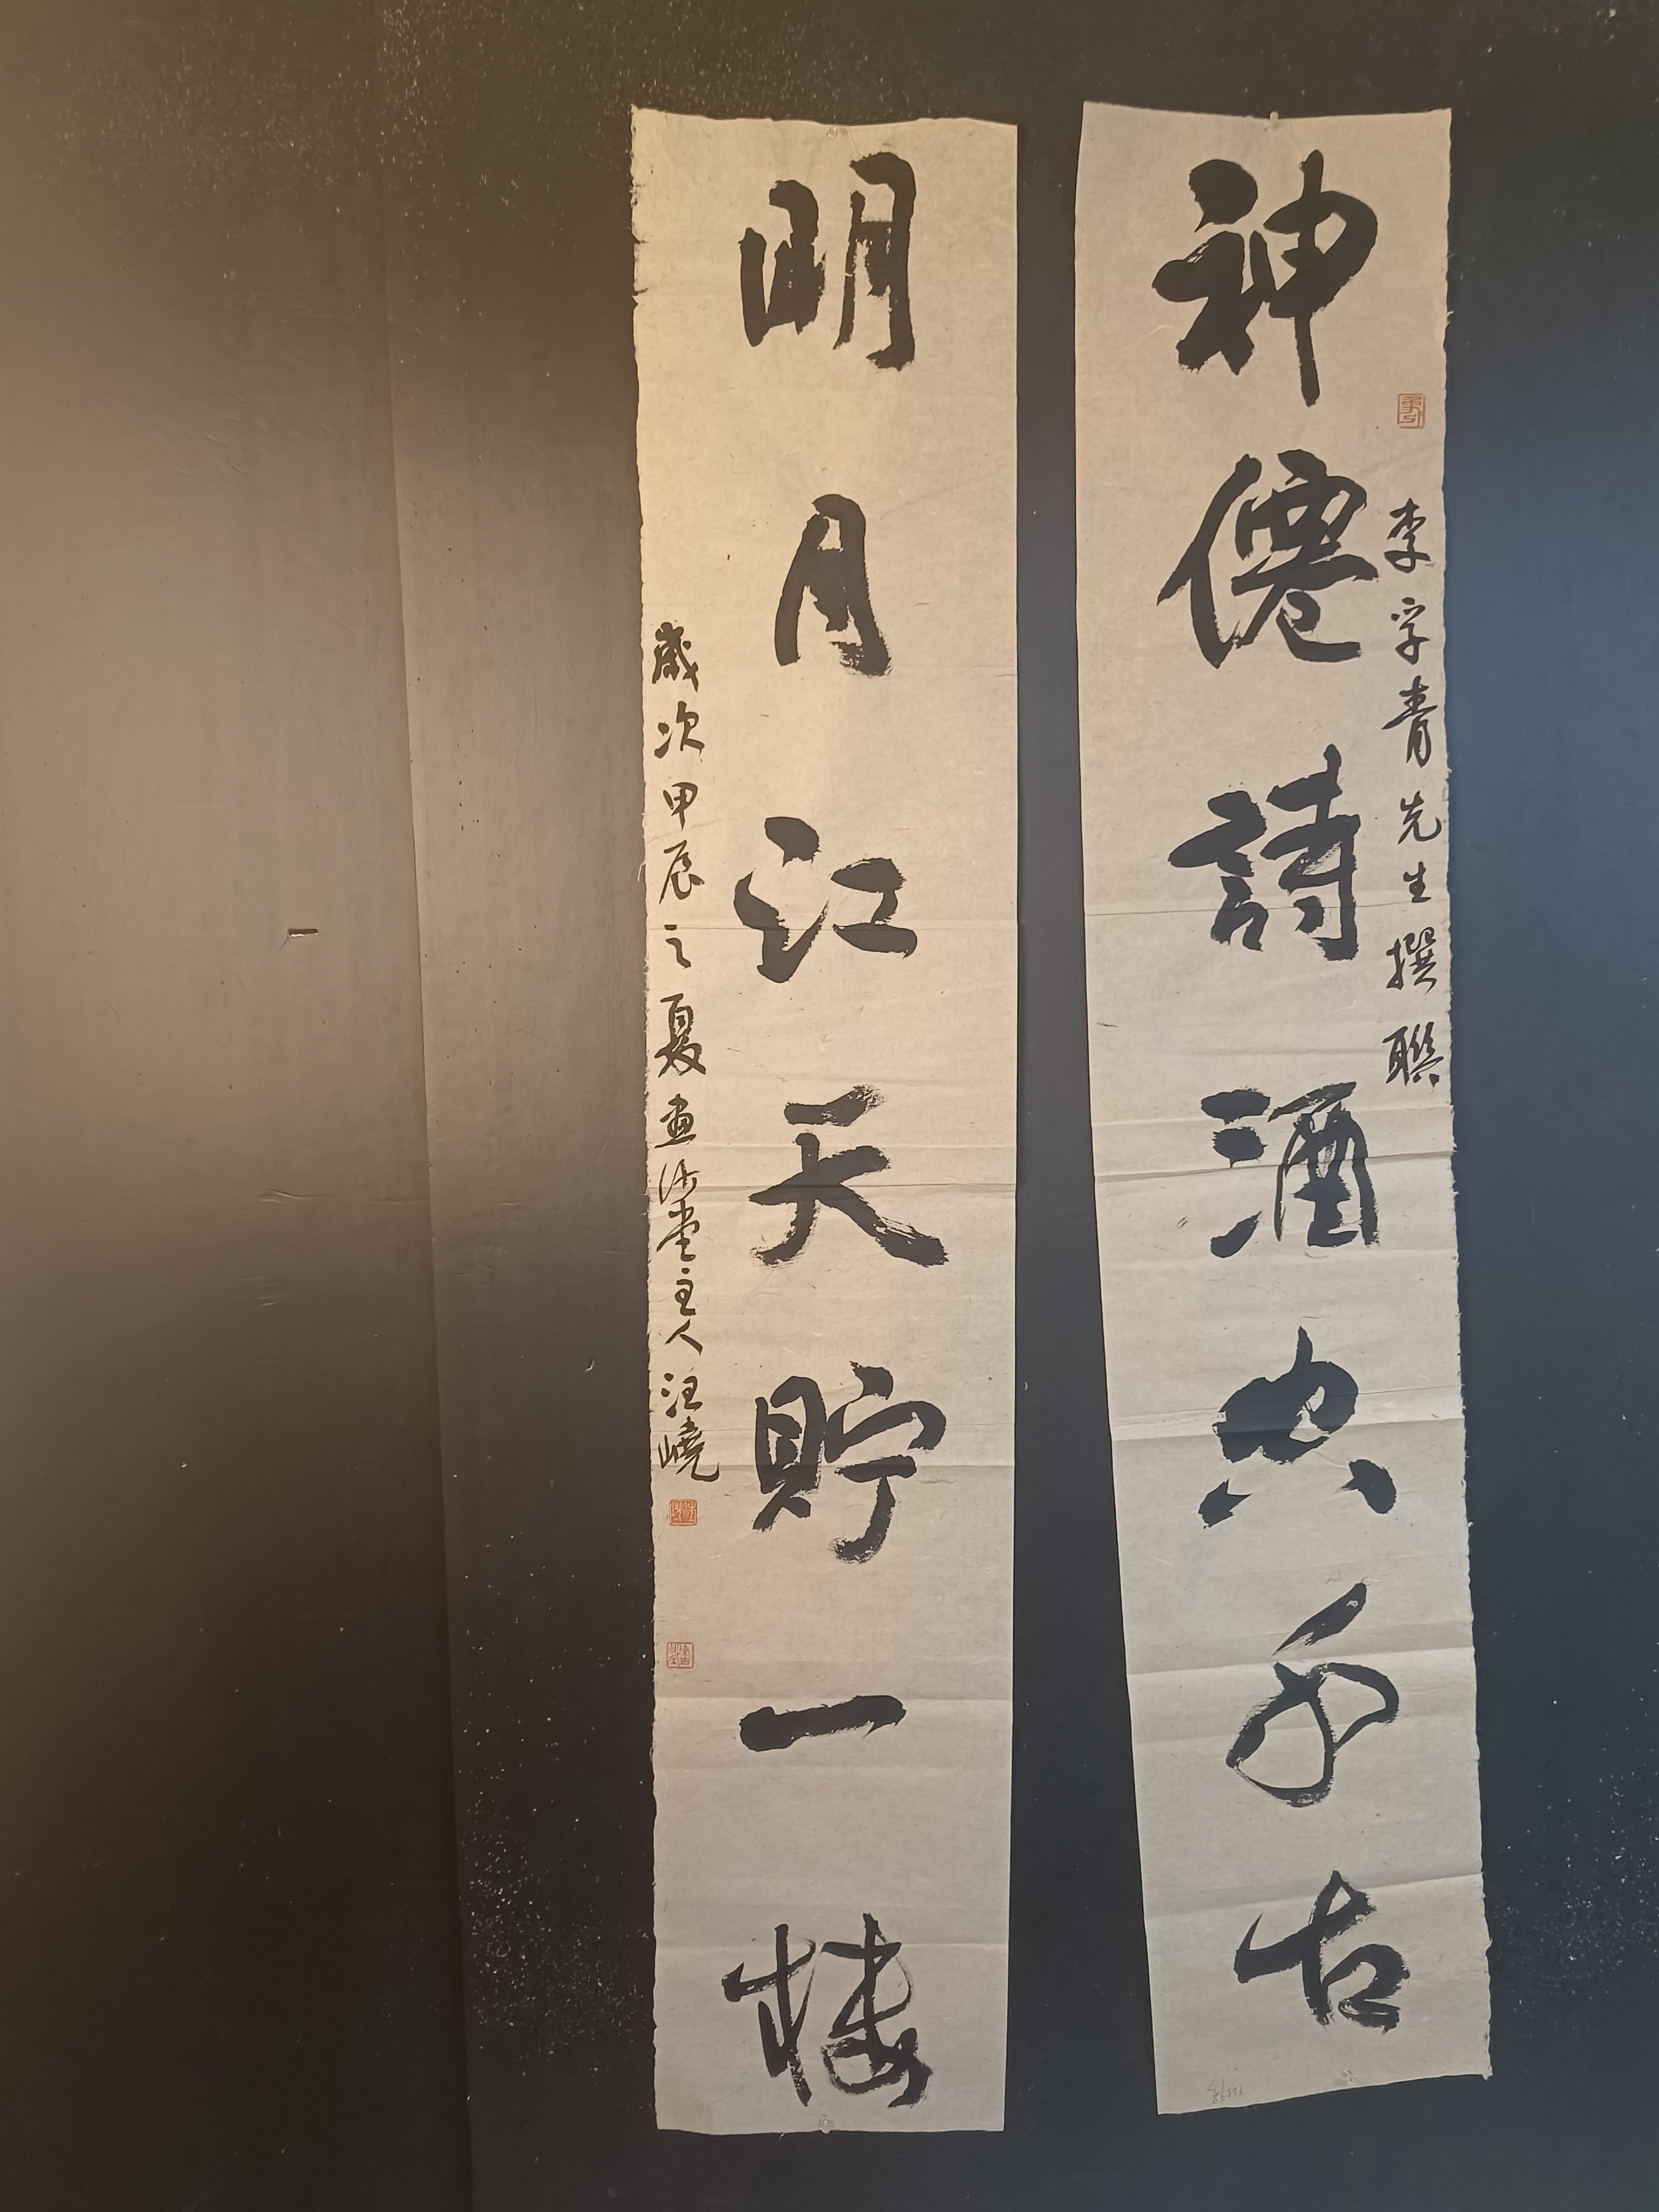 李孚青先生撰聯
神僊詩酒空千古
明月江天貯一樓
歲次甲辰之夏畫沙堂主人汪嶢